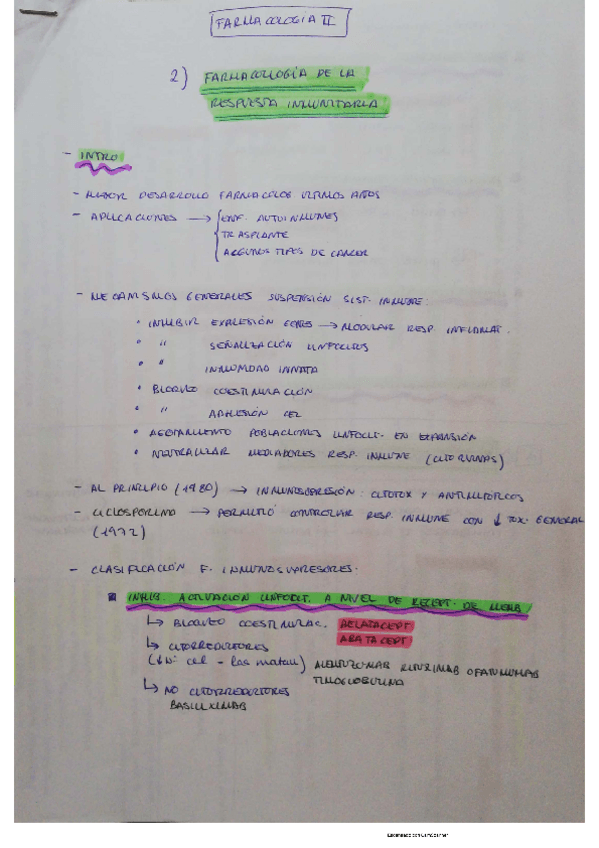 FARMACOLOGÍA II
2) FARMACOLOGÍA DE LA
RESPUESTA INMUNITARIA
- INTRO
- MAYOR DESARROLLO FARMACOLOG ÚLTIMOS AÑOS
- APLICACIONES → ENF. AUTOINMUNES
TRASPLANTE
ALGUNOS TIPOS DE CANCER
- MECANISMOS GENERALES SUSPENSIÓN SIST. INMUNE:
• INHIBIR EXPRESIÓN GENES → MODULAR RESP. INFLAMAT.
• " SEÑALIZACIÓN LINFOCITOS
• " INMUNIDAD INNATA
• BLOQUEO COESTIMULACIÓN
• " ADHESIÓN CEL
• AGOTAMIENTO POBLACIONES LINFOCIT. EN EXPANSIÓN
• NEUTRALIZAR MEDIADORES RESP. INMUNE (CITOQUINAS)
- AL PRINCIPIO (1980) → INMUNOSUPRESIÓN: CITOTOX Y ANTIMITÓTICOS
- CICLOSPORINA → PERMITIÓ CONTROLAR RESP. INMUNE CON ↓ TOX. GENERAL
(1972)
- CLASIFICACIÓN F. INMUNOSUPRESORES.
INHIB. ACTIVACIÓN LINFOCIT. A NIVEL DE RECEPT. DE MEMB
↳ BLOQUEO COESTIMULAC. BELATACEPT
ABATACEPT
↳ CITORREDUCTORES
(↓Nº cel - las matan) ALEMTUZUMAB RITUXIMAB OFATUMUMAB
TIMOGLOBULINA
↳ NO CITORREDUCTORES
BASILIXIMAB
Escaneado con CamScanner